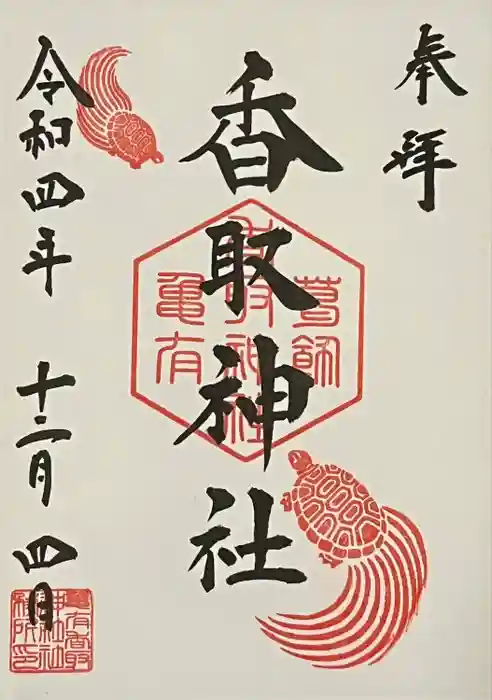 奉拝
香取神社
葛飾
香取神社
亀有
令和四年 十二月 四日
亀有香取
神社社
務所印